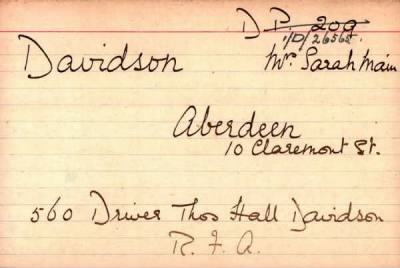 D P 209
1/D/2656
Davidson
Mrs. Sarah Main
Aberdeen
10 Claremont St.
560 Driver Thos Hall Davidson
R. F. A.